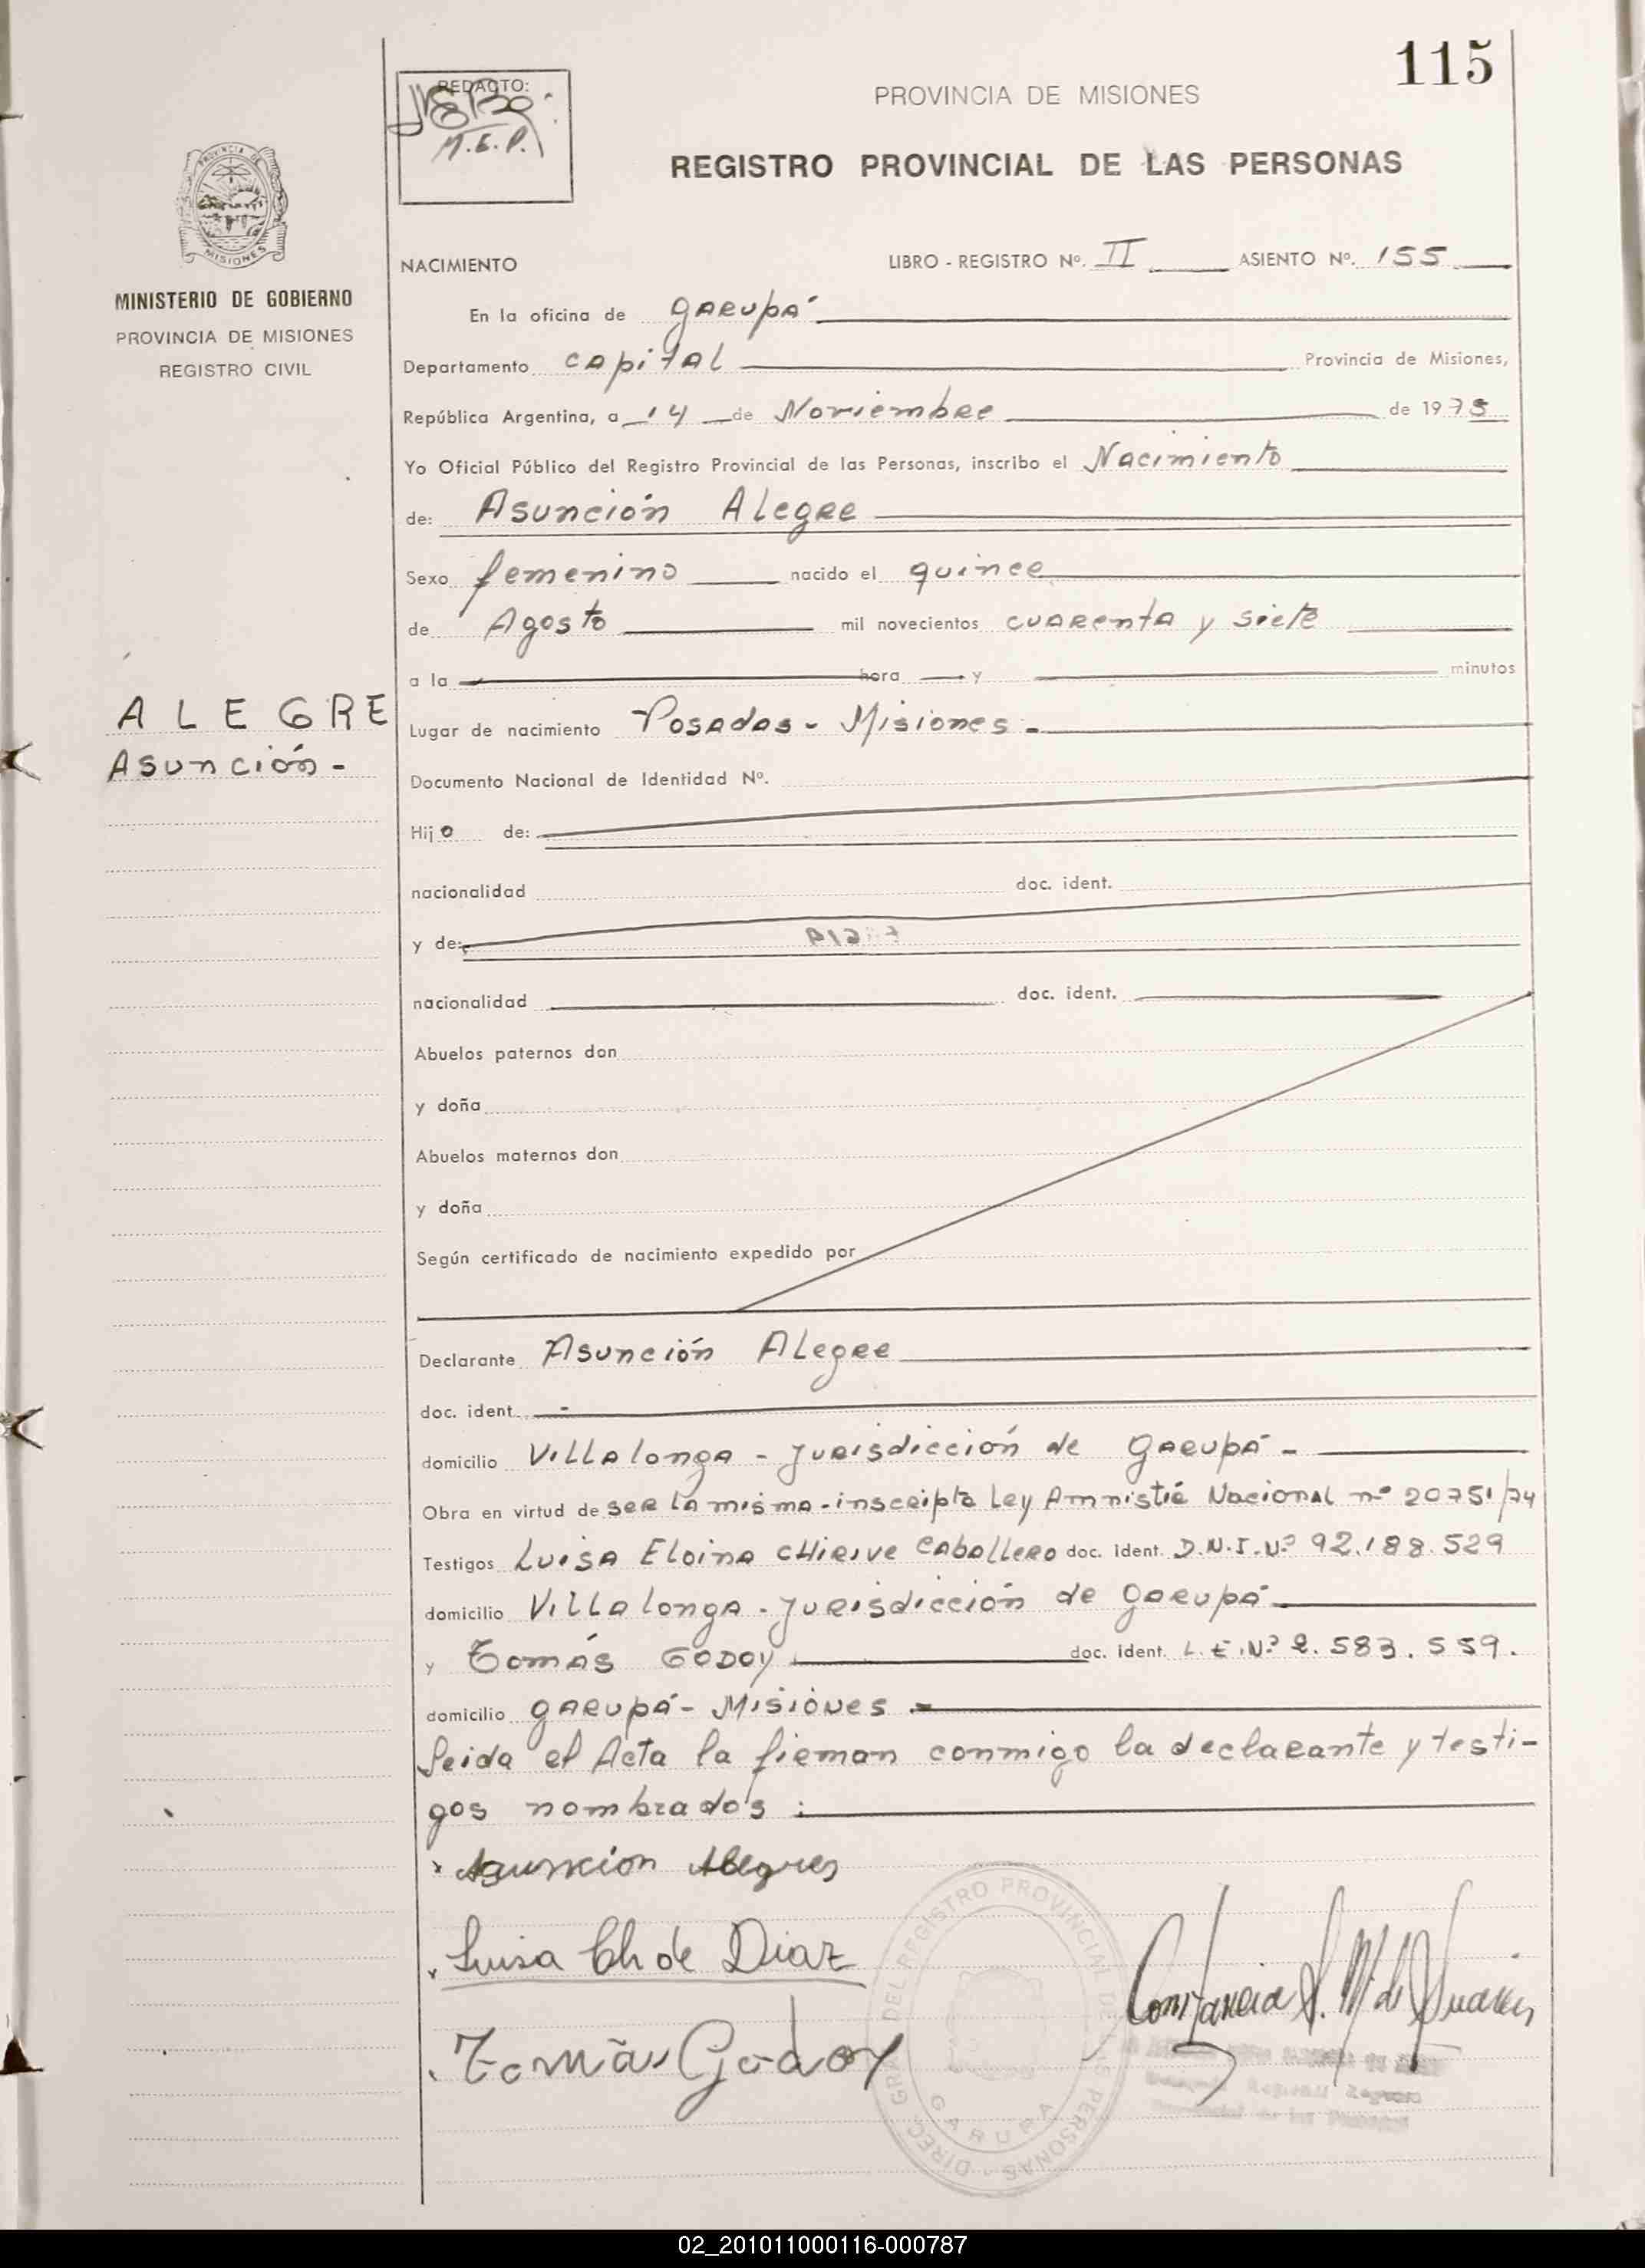 115
REDACTO:
M.E.P.
PROVINCIA DE MISIONES
REGISTRO PROVINCIAL DE LAS PERSONAS
PROVINCIA DE
MISIONES
MINISTERIO DE GOBIERNO
PROVINCIA DE MISIONES
REGISTRO CIVIL
NACIMIENTO LIBRO - REGISTRO Nº. II ASIENTO Nº. 155
En la oficina de GARUPÁ
Departamento CAPITAL Provincia de Misiones,
República Argentina, a 14 de Noviembre de 1975
Yo Oficial Público del Registro Provincial de las Personas, inscribo el Nacimiento
de: Asunción Alegre
Sexo femenino nacido el quince
de Agosto mil novecientos cuarenta y siete
a la hora y minutos
ALEGRE
Asunción-
Lugar de nacimiento Posadas - Misiones -
Documento Nacional de Identidad Nº.
Hijo de:
nacionalidad doc. ident.
y de:
nacionalidad doc. ident.
Abuelos paternos don
y doña
Abuelos maternos don
y doña
Según certificado de nacimiento expedido por
Declarante Asunción Alegre
doc. ident. -
domicilio Villalonga - Jurisdicción de Garupá -
Obra en virtud de ser la misma - inscripta Ley Amnistía Nacional nº 20751/74
Testigos Luisa Eloina Chirive Caballero doc. ident. D.N.I. Nº 92.188.529
domicilio Villalonga - Jurisdicción de Garupá
y Tomás Godoy doc. ident. L.E. Nº 2.583.559.
domicilio Garupá - Misiones -
Leida el Acta la firman conmigo la declarante y testi-
gos nombrados :
Asunscion Alegres
Luisa Ch de Diaz
Tomás Godoy
DIREC. GRAL DEL REGISTRO PROVINCIAL DE LAS PERSONAS
GARUPA
02_201011000116-000787